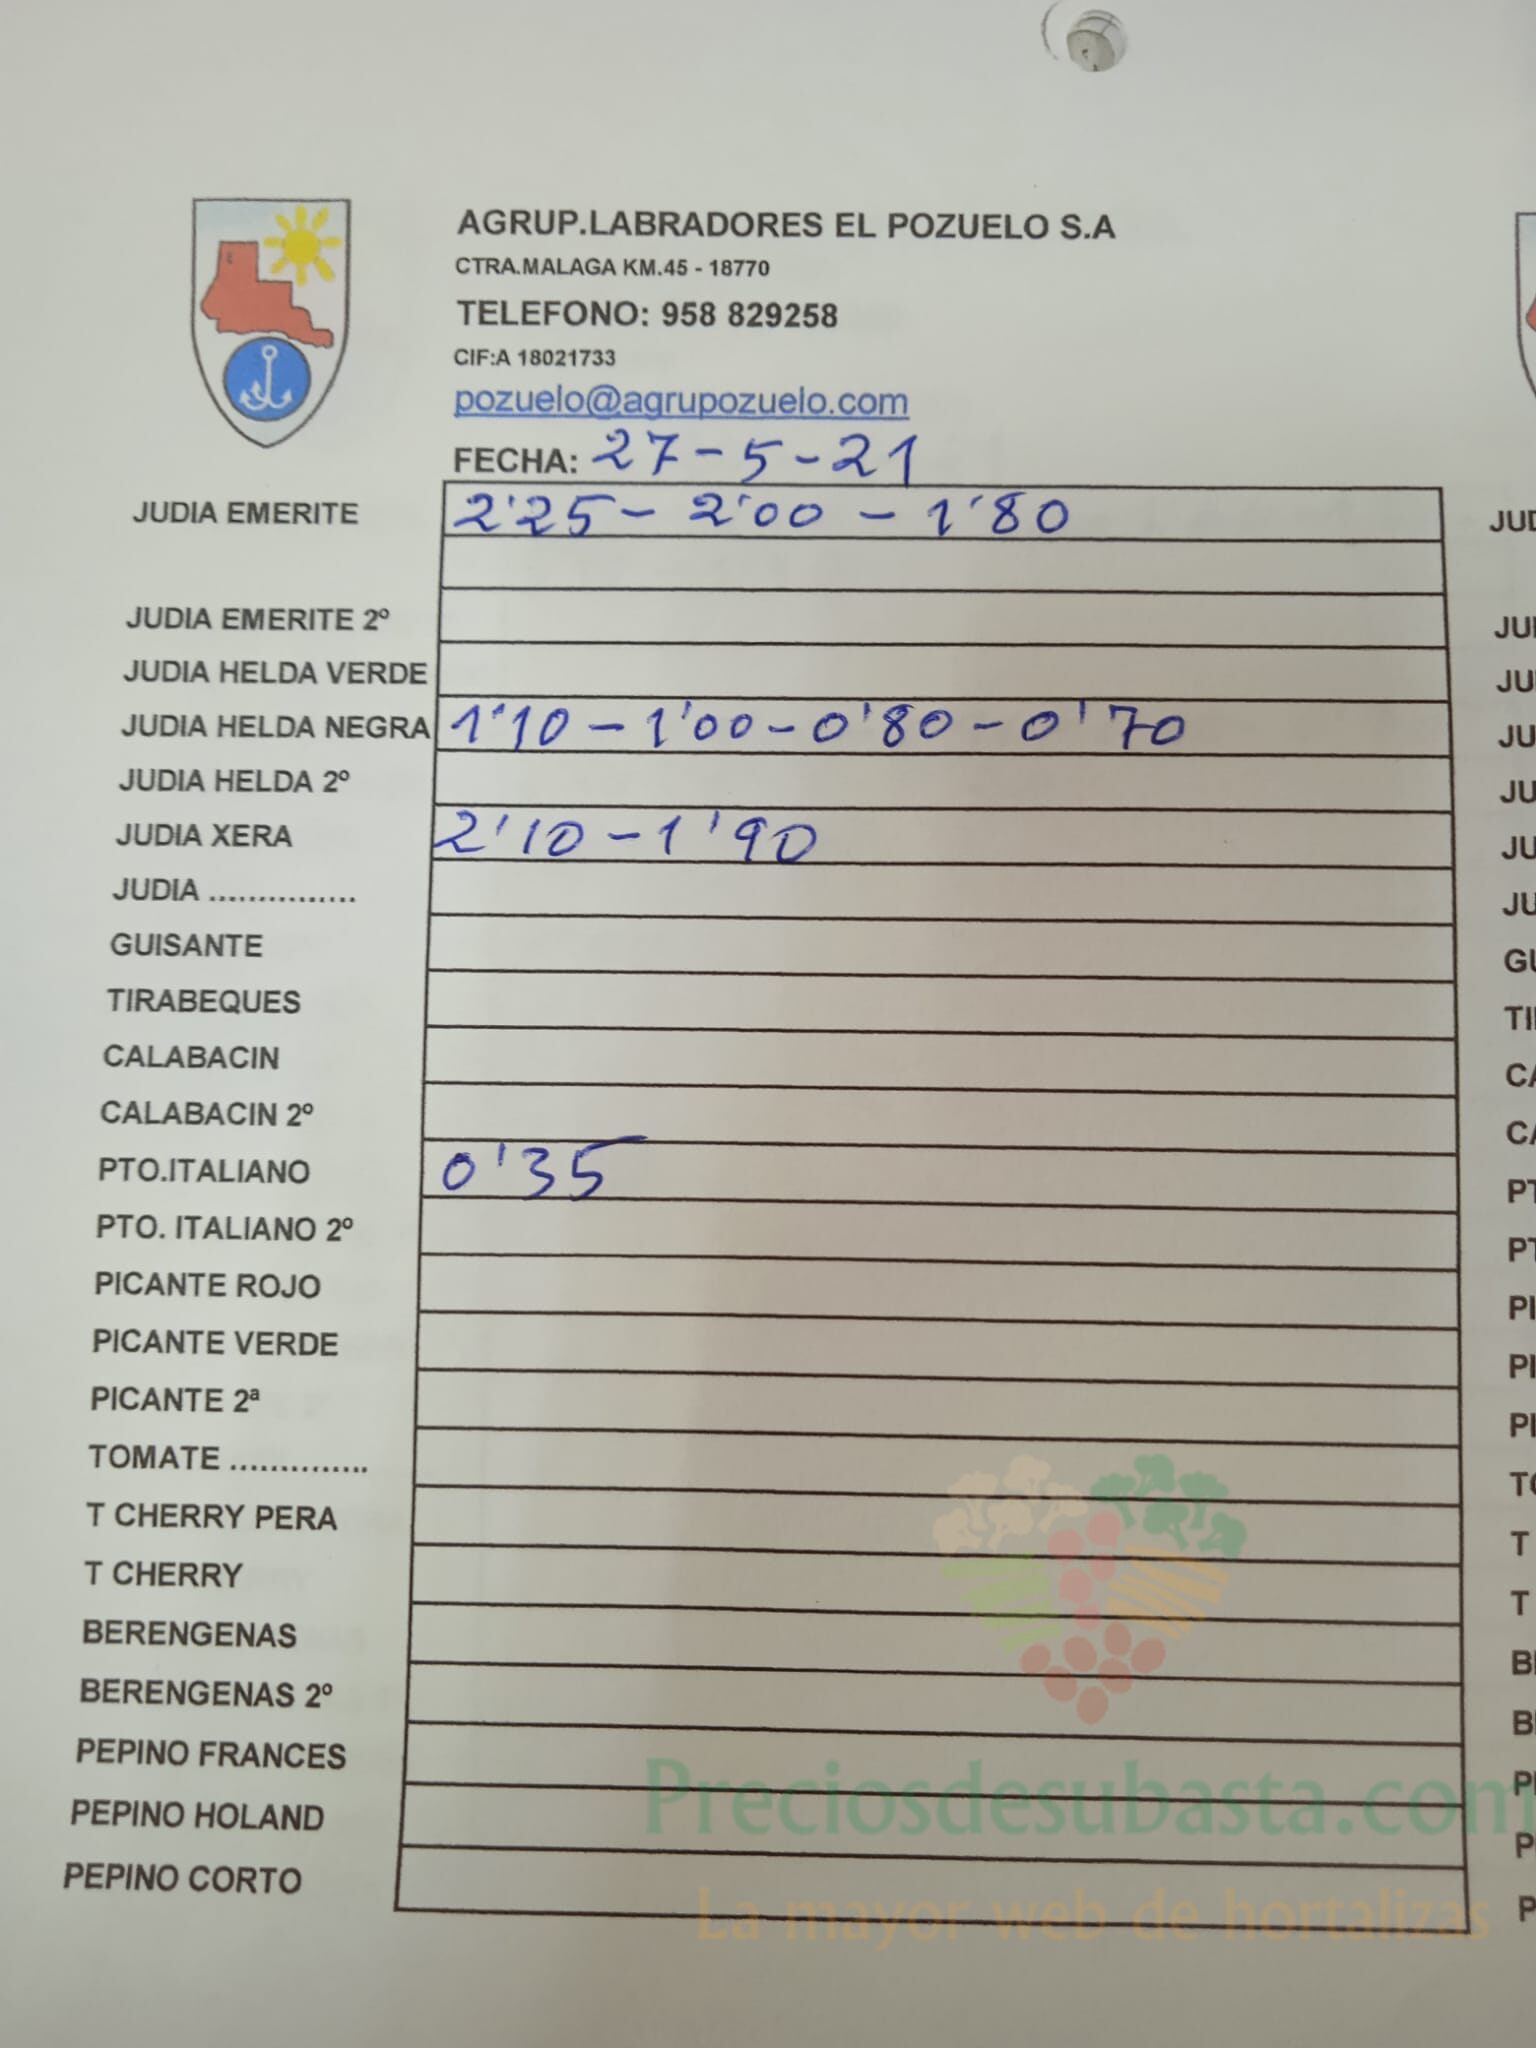 AGRUP.LABRADORES EL POZUELO S.A
CTRA.MALAGA KM.45 - 18770
TELEFONO: 958 829258
CIF:A 18021733
pozuelo@agrupozuelo.com
FECHA: 27-5-21
JUDIA EMERITE 2'25 - 2'00 - 1'80
JUDIA EMERITE 2º
JUDIA HELDA VERDE
JUDIA HELDA NEGRA 1'10 - 1'00 - 0'80 - 0'70
JUDIA HELDA 2º
JUDIA XERA 2'10 - 1'90
JUDIA ...............
GUISANTE
TIRABEQUES
CALABACIN
CALABACIN 2º
PTO.ITALIANO 0'35
PTO. ITALIANO 2º
PICANTE ROJO
PICANTE VERDE
PICANTE 2ª
TOMATE ..............
T CHERRY PERA
T CHERRY
BERENGENAS
BERENGENAS 2º
PEPINO FRANCES
PEPINO HOLAND
PEPINO CORTO
Preciosdesubasta.com
La mayor web de hortalizas